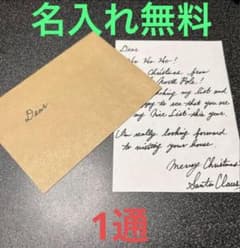 名入れ無料
Dear
Dear
Ho Ho Ho!
Christmas from
North Pole!
checking my list and
happy to see that you are
my Nice List this year.
I'm really looking forward
to visiting your house.
Merry Christmas
Santa Claus
1通